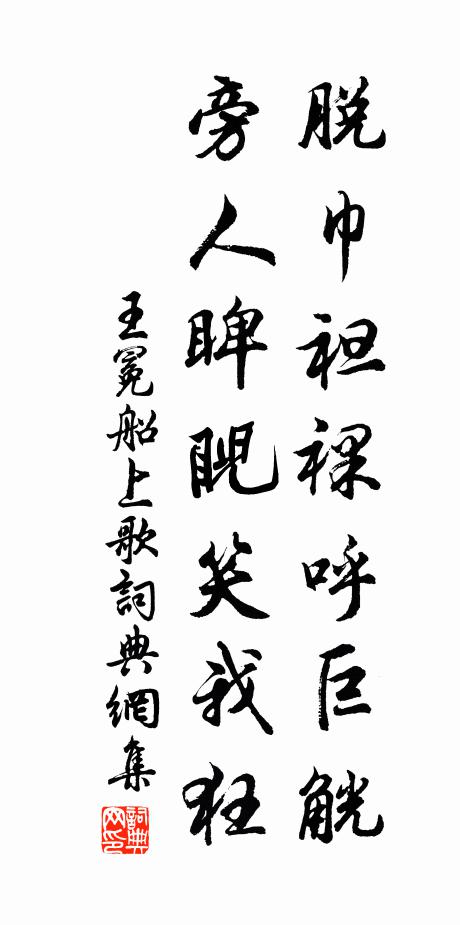 脫巾袒裸呼巨觥
旁人睥睨笑我狂
王冕船上歌詞典網集
詞典網印